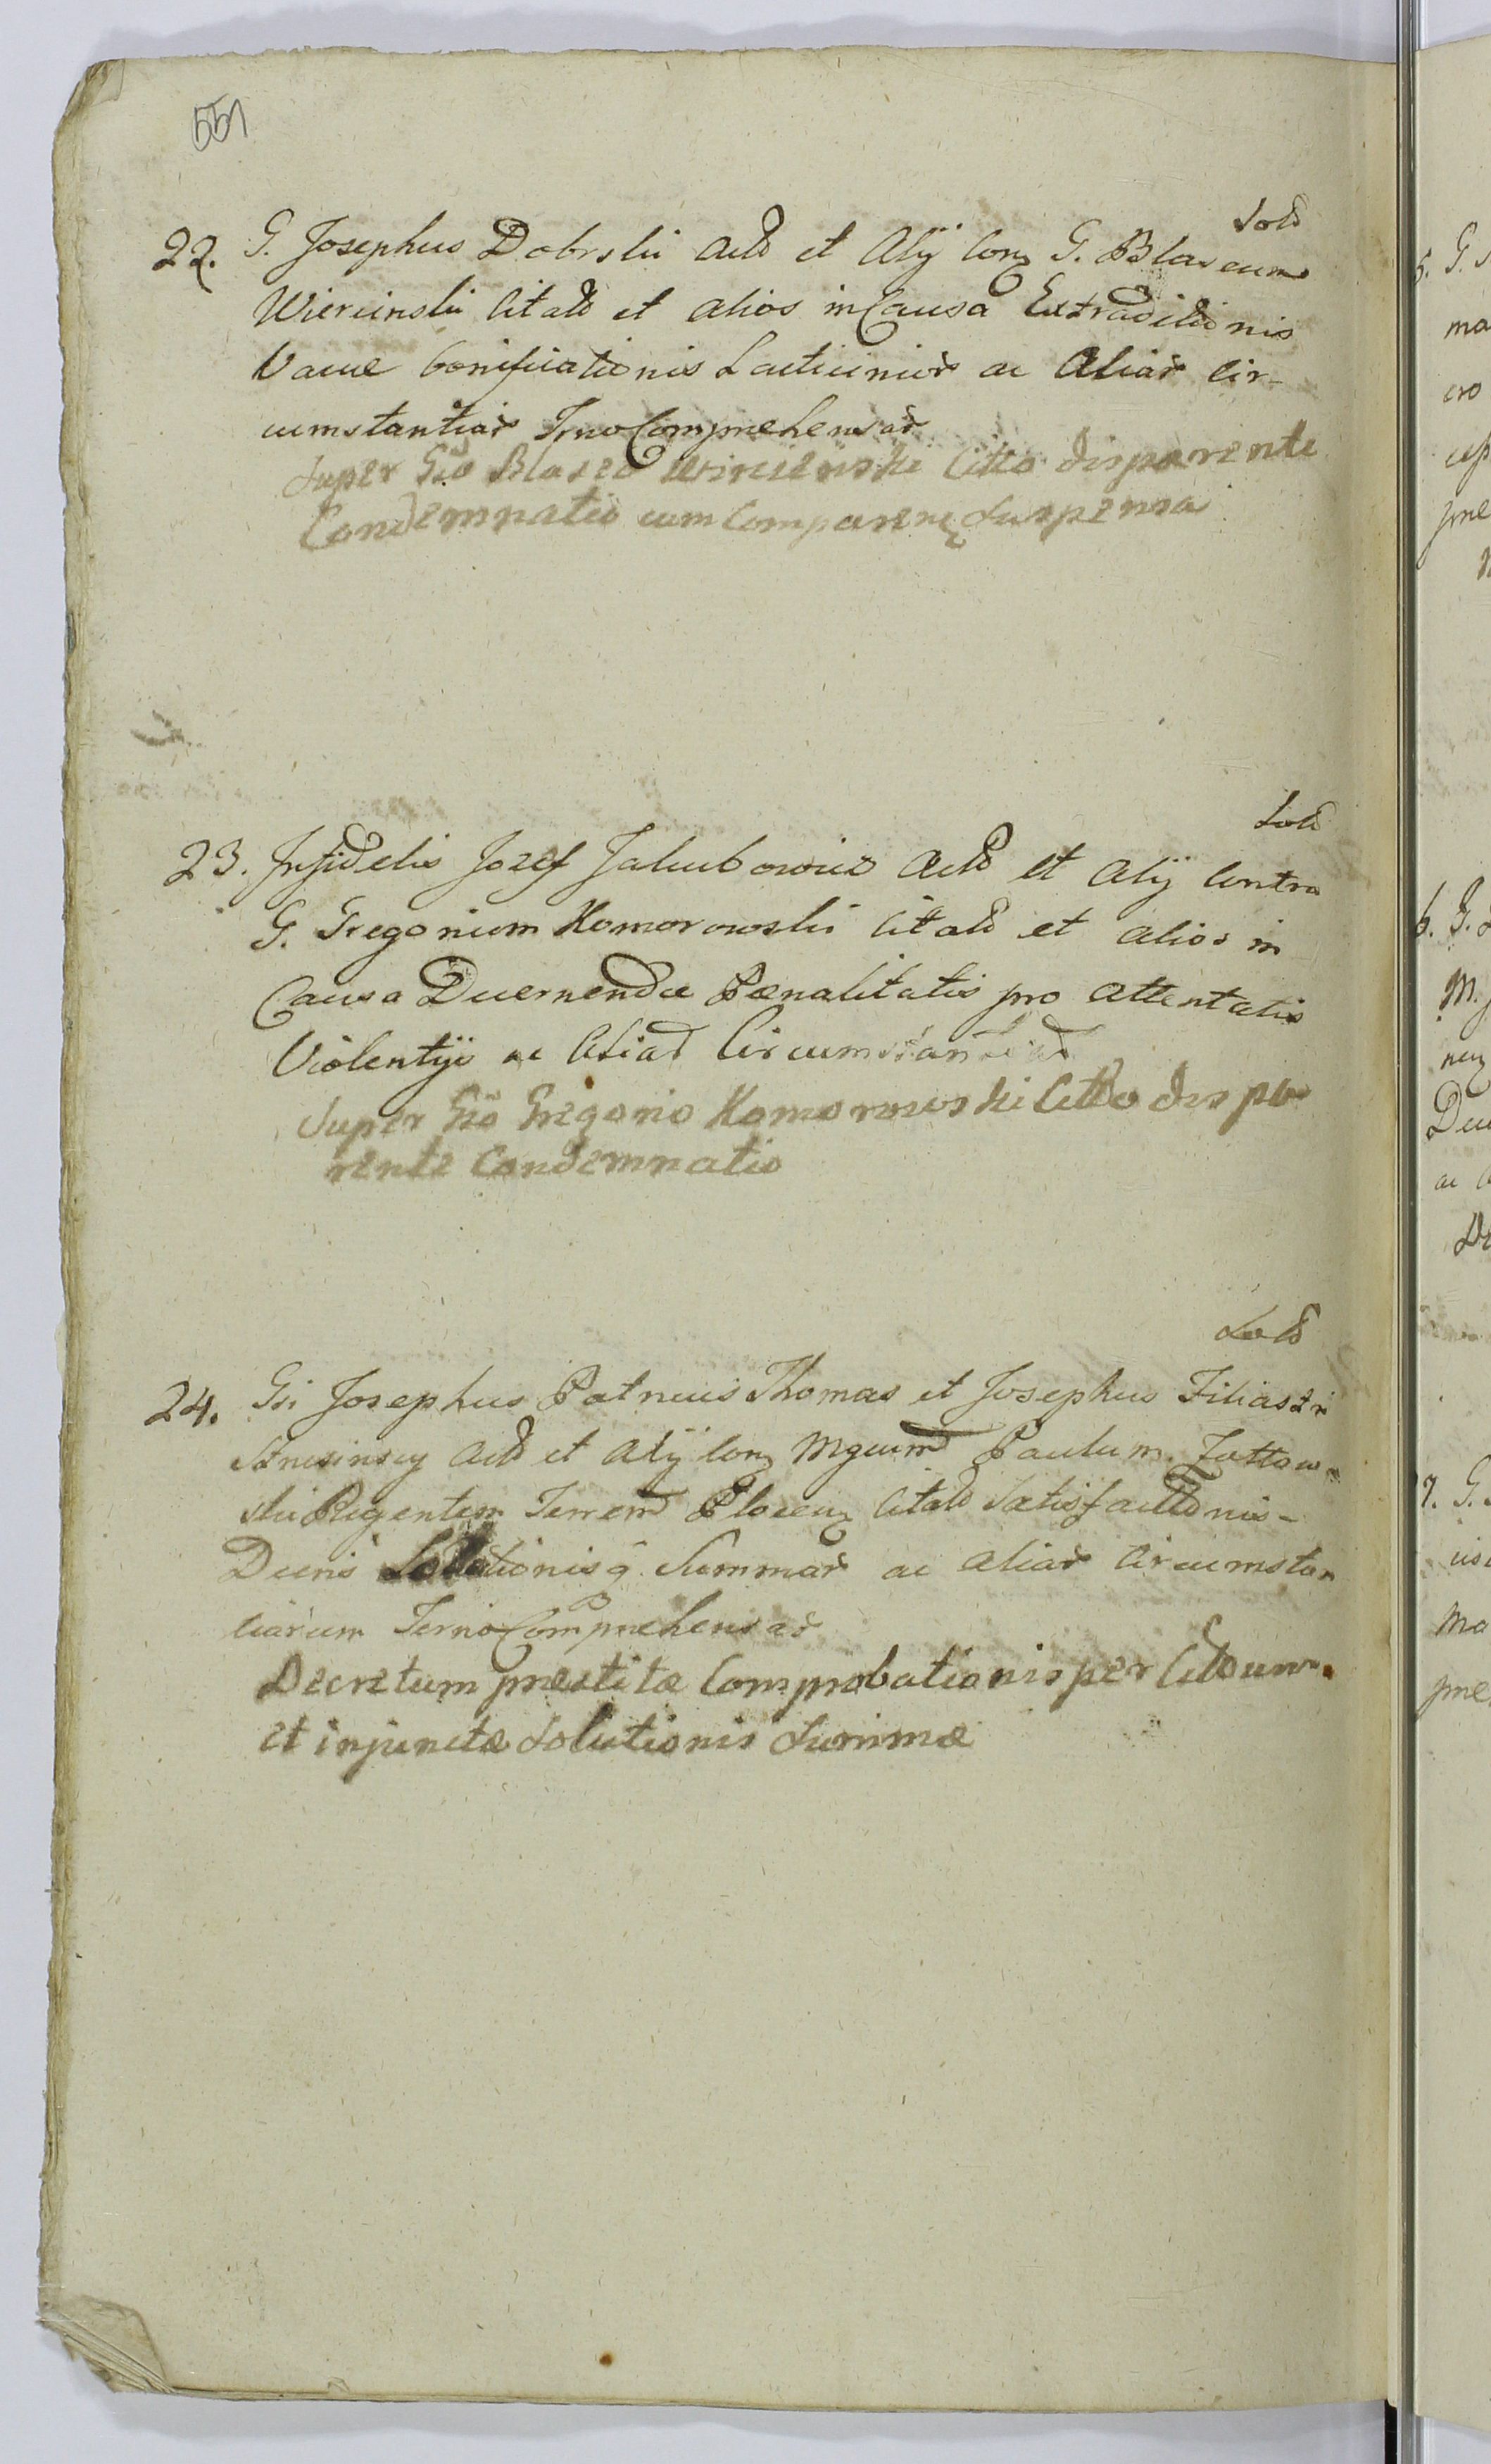 551
Sol&
22. G. Josephus Dobrski Act& et Alij Con& G. Blaseum
Wiercinski Citat& et alios in Causa Extraditionis
Vacue bonificationis Lacticinior ac Aliar Cir-
cumstantiar Trno Comprehensar
Super Gso Blaseo Citto disparente
Condemnatio cum Comparen& Suspensa
Sol&
23. Infidelis Jozef Jakubowicz Act& et Alij Contra
G. Gregorium Komorowski Citat& et alios in
Causa Decernendæ Pænalitatis pro attentatis
Violentijs ac Aliar Circumstantiar
Super Gso Gregorio Komorowski Citto dispa
rente Condemnatio
Sol&
24. Gsi Josephus Patruus Thomas et Josephus Filiastri
Act& et Alij Con& Mgcum Paulum
ski Regentem Terrem Plocen& Citat& Satisfactionis-
Decris Solutionisq. Summar ac aliar Circumstan
ciarum Terno Comprehensar
Decretum præstitæ Comprobationis per Cittum
et injunctæ Solutionis Summæ